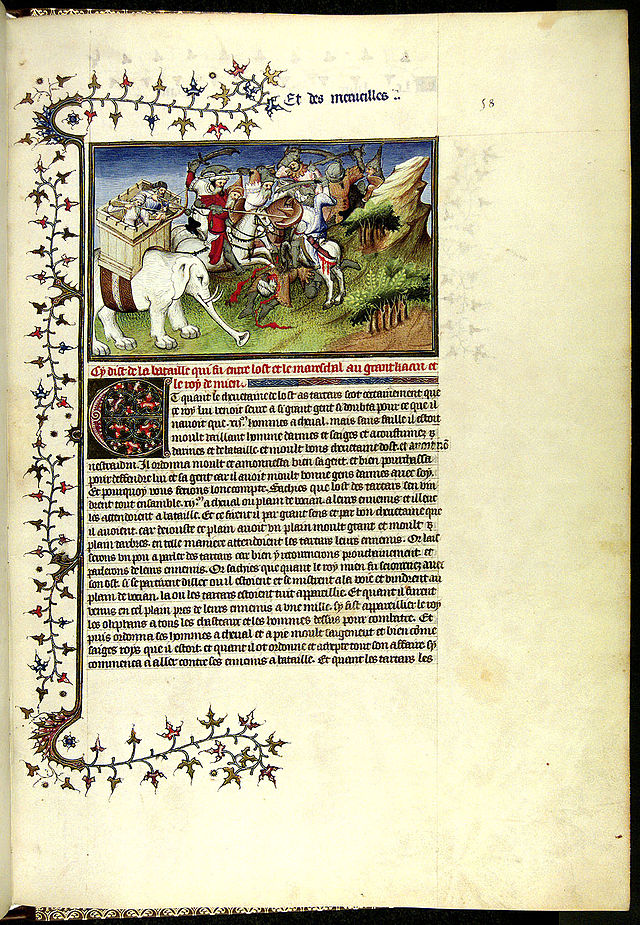 Et des merueilles
58
Cy dist de la bataille qui fu entre lost et le mareschal au grant kaan et
le roy de mien.
Et quant le cheuetaine de lost as tartars sceut certainement que
ce roy lui venoit seure a si grant gent si doubta pour ce que il
nauoit que .xij.m hommes a cheual. mais sanz faille il estoit
moult vaillant homme darmes et saiges et acoustumez
darmes et de bataille. et moult bons cheuetaine dost. et
Il ordonna moult et amonnesta bien sa gent. et bien pourchassa
pour deffendre lui et sa gent car il auoit moult bonne gens darmes auec soy.
Et pourquoy vous feroie lonc compte. Sachies que lost des tartars sen vin
drent tout ensamble .xij.m a cheual ou plain de vocian a leurs ennemis et illeuc
les attendoient a bataille. Et ce firent il par grant sens et par bon cheuetaine que
il auoient. car dejouste ce plain auoit vn plain moult grant et moult
plain darbres. en telle maniere attendoient les tartars leurs ennemis. Or lais
serons vn pou a parler des tartars car bien y retournerons prouchainement et
parlerons de leurs ennemis. Or sachies que quant le roy mien fu seiournez auec
son ost. si se partirent dilec ou il estoient et se mistrent a la voie et vindrent au
plain de vocian. la ou les tartars estoient tuit appareillie. Et quant il furent
venus en cel plain pres de leurs ennemis a vne mille. sy fist appareillier le roy
les oliphans a tous les chasteaux et les hommes dessus pour combatre. Et
puis ordonna ses hommes a cheual et a pie moult saigement et bien come
saiges roys que il estoit. et quant il ot ordonne et acheue tout son affaire sy
commenca a aller contre ses ennemis a bataille. Et quant les tartars les